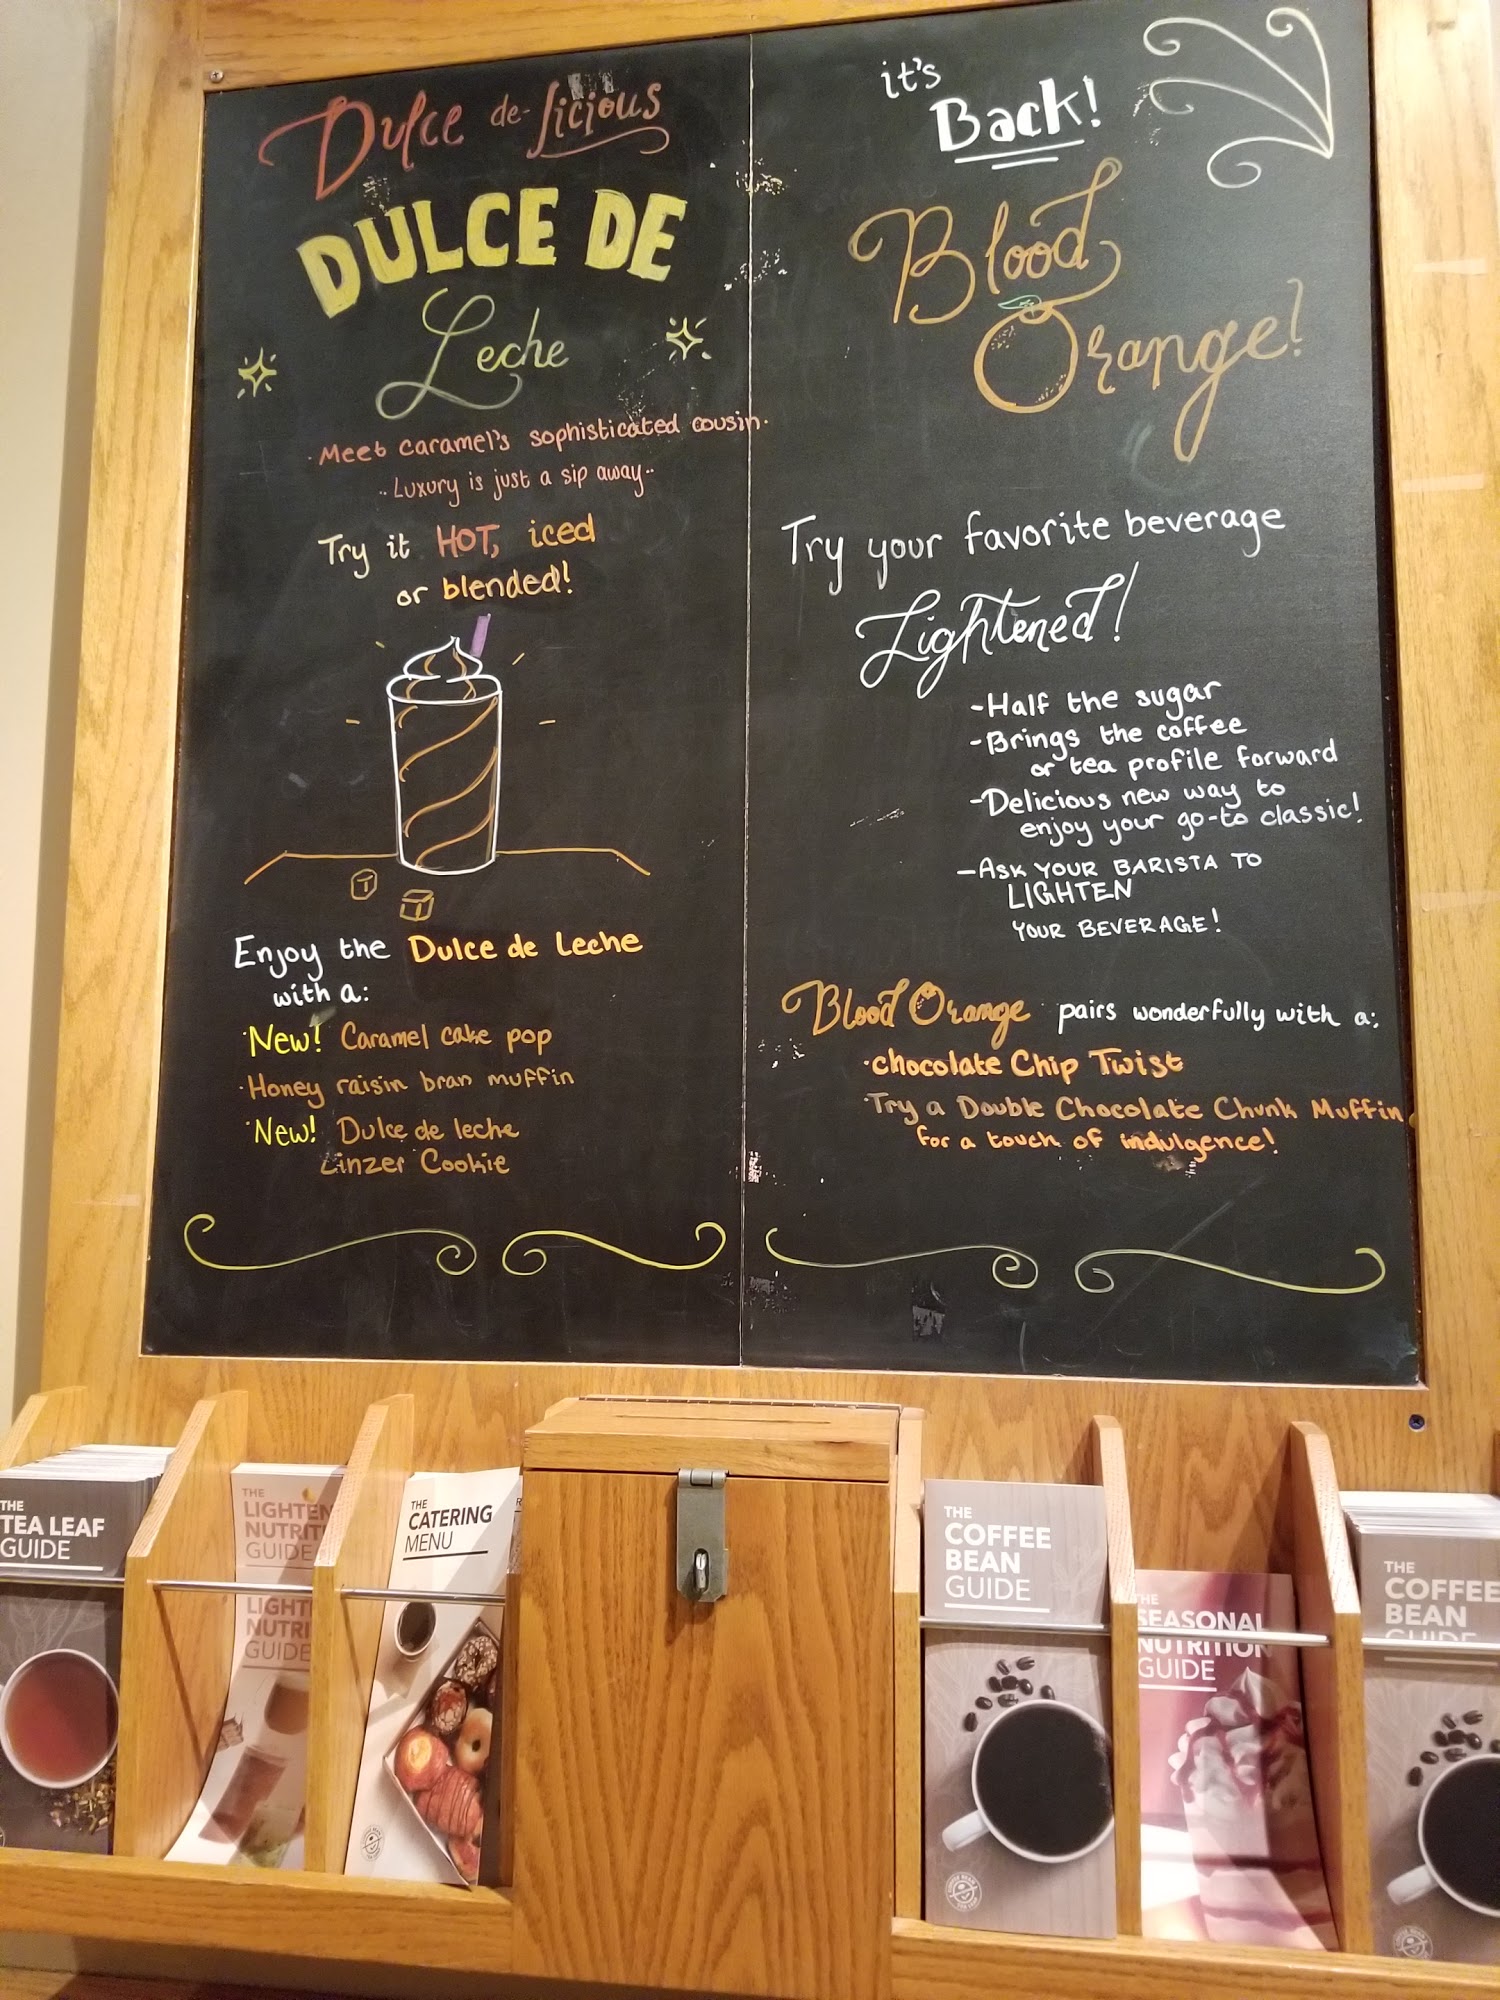 Dulce de-licious
DULCE DE
Leche
·Meet caramel's sophisticated cousin·
··Luxury is just a sip away··
Try it HOT, iced
or blended!
Enjoy the Dulce de Leche
with a:
·New! Caramel cake pop
·Honey raisin bran muffin
·New! Dulce de leche
Linzer Cookie
it's
Back!
Blood
Orange!
Try your favorite beverage
Lightened!
-Half the sugar
-Brings the coffee
or tea profile forward
-Delicious new way to
enjoy your go-to classic!
-ASK YOUR BARISTA TO
LIGHTEN
YOUR BEVERAGE!
Blood Orange pairs wonderfully with a:
·chocolate Chip Twist
·Try a Double Chocolate Chunk Muffin
for a touch of indulgence!
THE
TEA LEAF
GUIDE
THE
LIGHTEN
NUTRITI
GUIDE
LIGHT
NUTRI
GUIDE
THE
CATERING
MENU
THE
COFFEE
BEAN
GUIDE
THE
SEASONAL
NUTRITION
GUIDE
THE
COFFEE
BEAN
GUIDE